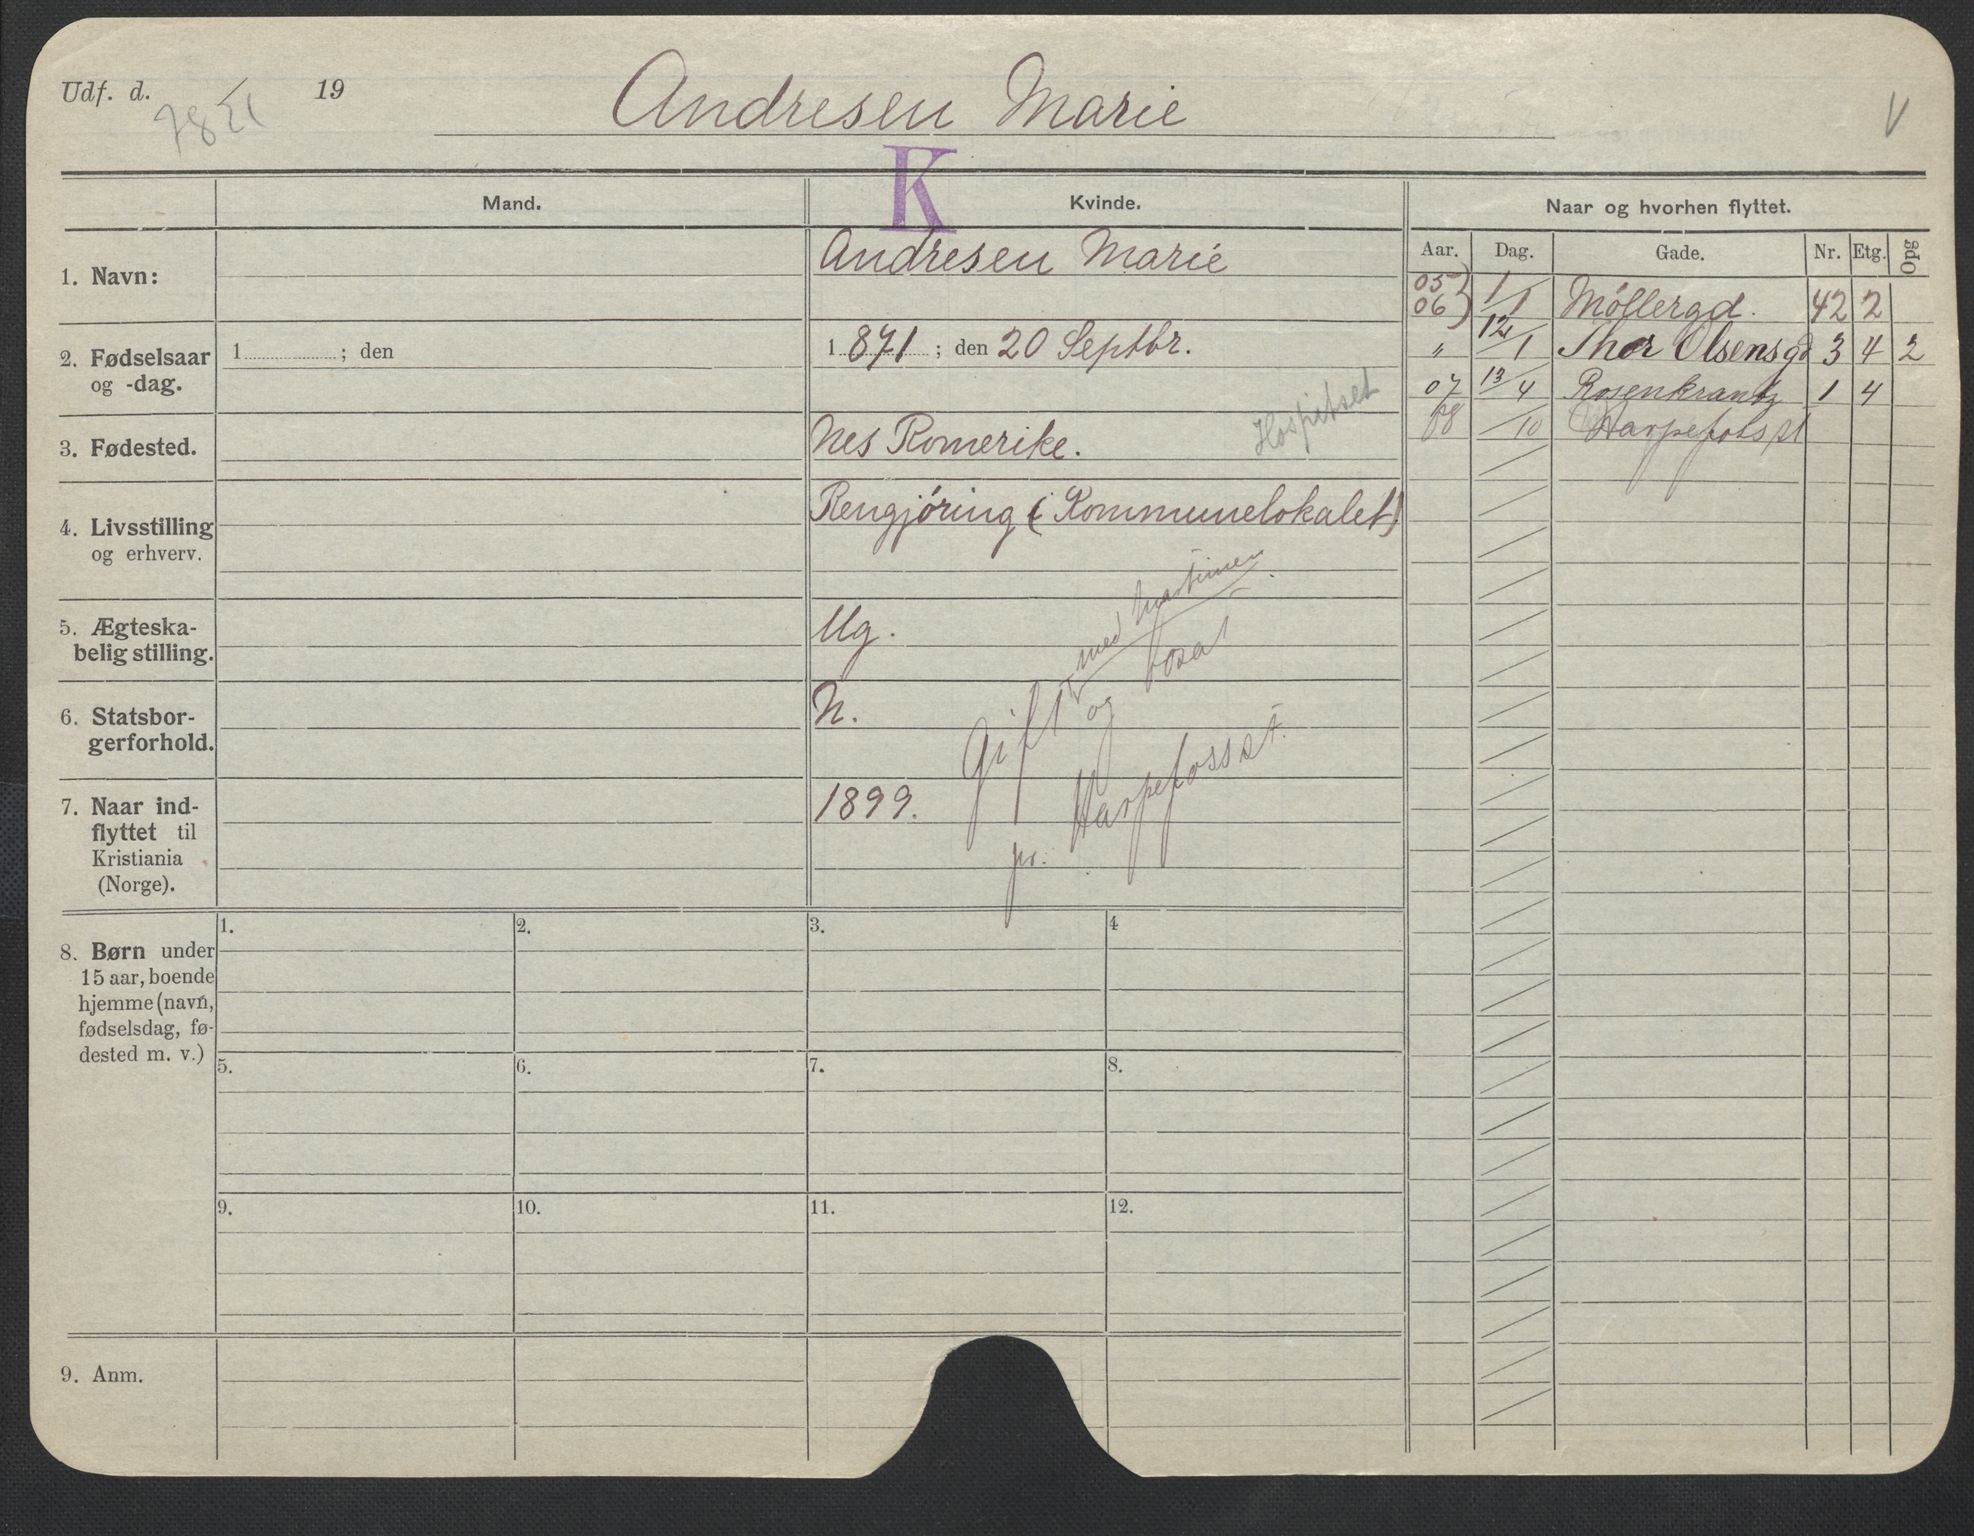 Udf. d. 19
Andresen Marie
V
K
Mand.
Kvinde.
Naar og hvorhen flyttet.
Aar. Dag. Gade. Nr. Etg. Opg
1. Navn:
Andresen Marie
05 1/1
06 Möllergd. 42 2
" 12/1 Thor Olsensgd 3 4 2
07 13/4 Rosenkrantz 1 4
08 /10 Harpefoss st
2. Fødselsaar
og -dag.
1 ; den
1 871 ; den 20 Septbr.
3. Fødested.
Nes Romerike.
Hospitset
4. Livsstilling
og erhverv.
Rengjöring (i Kommunelokalet)
5. Ægteska-
belig stilling.
Ug.
6. Statsbor-
gerforhold.
N.
Gift med
og bosat
pr. Harpefoss st.
7. Naar ind-
flyttet til
Kristiania
(Norge).
1899.
8. Børn under
15 aar, boende
hjemme (navn,
fødselsdag, fø-
dested m. v.)
1. 2. 3. 4
5. 6. 7. 8.
9. 10. 11. 12.
9. Anm.